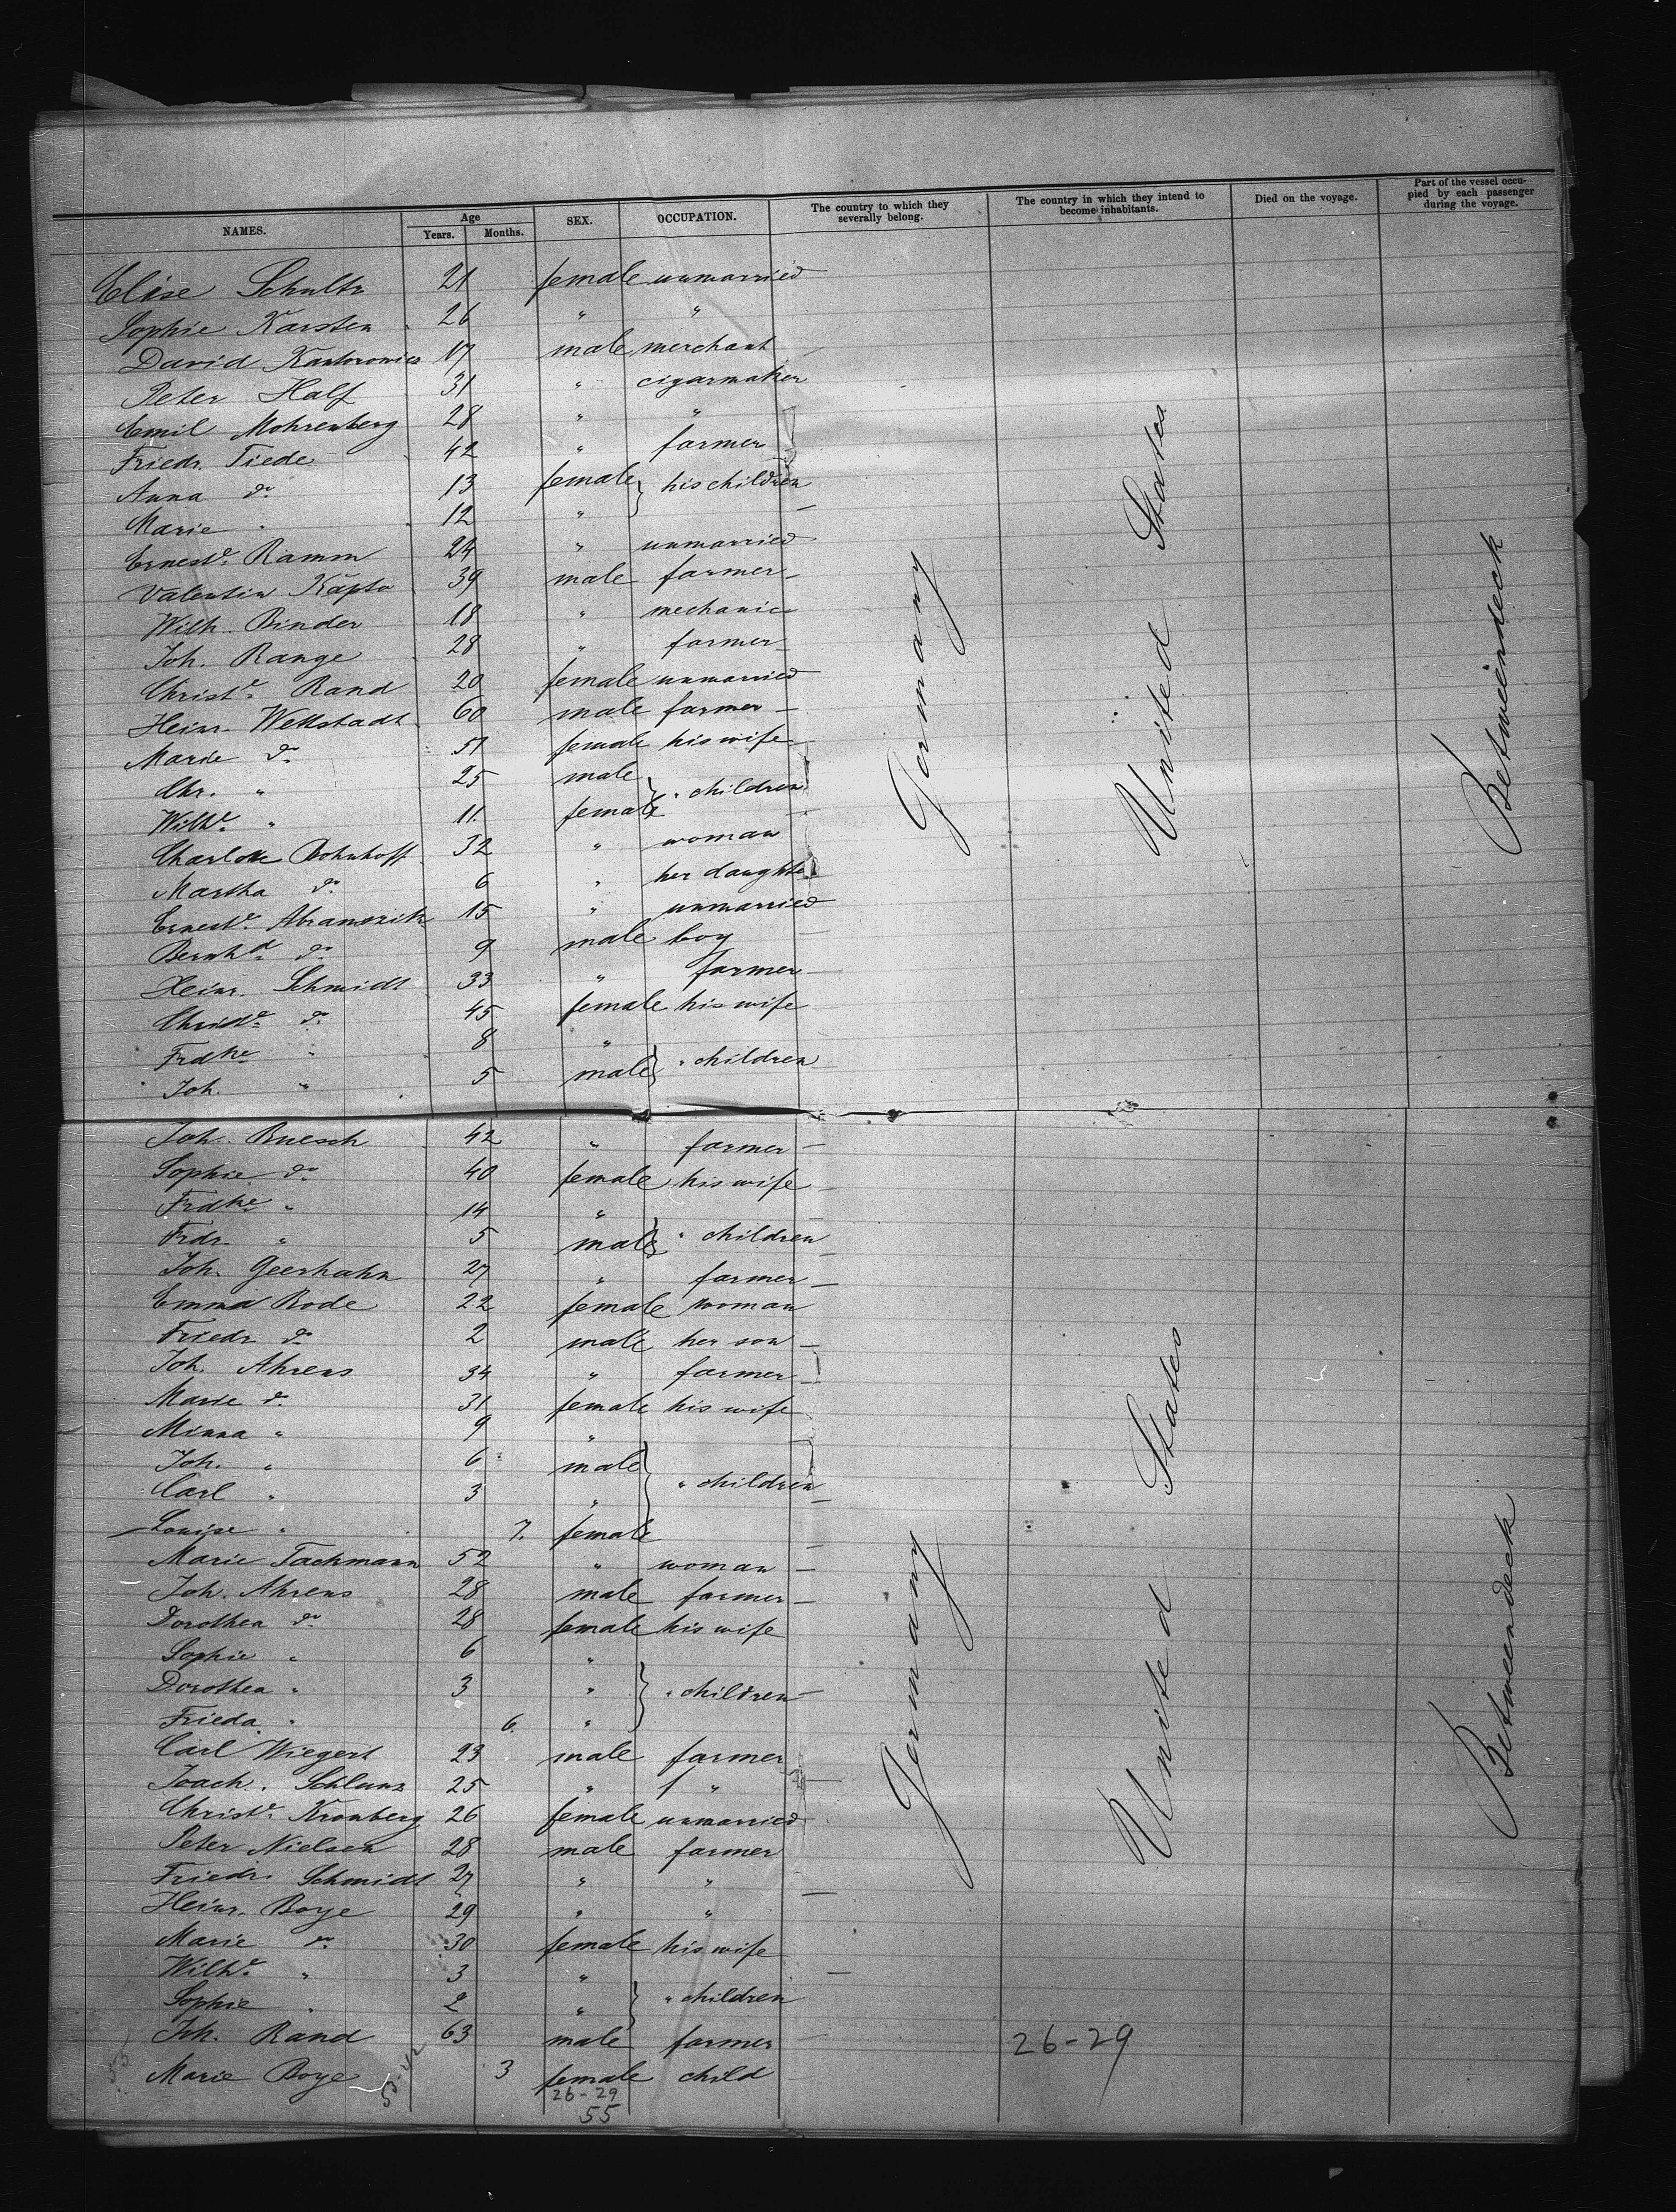 NAMES. Age Years. Months. SEX. OCCUPATION. The country to which they severally belong. The country in which they intend to become inhabitants. Died on the voyage. Part of the vessel occupied by each passenger during the voyage.
Elise Schultz 21 female unmarried
Sophie Karsten 26 " "
David Kantorowicz 17 male merchant
Peter Half 31 " cigarmaker
Emil Mohrenberg 28 " "
Friedr. Tiede 42 " farmer
Anna do 13 female } his children
Marie " 12 "
Ernest.e Ramm 24 " unmarried
Valentin Kapta 39 male farmer
Wilh. Binder 18 " mechanic
Joh. Range 28 " farmer
Christ.e Rand 20 female unmarried
Heinr. Wellstadt 60 male farmer
Marie do 51 female his wife
Chr. " 25 male } " children
Wilh.e " 11. female
Charlotte Bohnhoff 32 " woman
Martha do 6 " her daughter
Ernest.e 15 " unmarried
Bernh.d do 9 male boy
Heinr. Schmidt 33 " farmer
Christ.e do 45 female his wife
Frdke " 8 " } " children
Joh. " 5 male
Joh. Buesch 42 " farmer
Sophie do 40 female his wife
Frdke " 14 " } " children
Frdr. " 5 male
Joh. Geerhahn 27 " farmer
Emma Rode 22 female woman
Friedr do 2 male her son
Joh. Ahrens 34 " farmer
Marie do 31 female his wife
Minna " 9 " } " children
Joh. " 6 male
Carl " 3 "
Louise " 7. female
Marie Tachmann 52 " woman
Joh. Ahrens 28 male farmer
Dorothea do 28 female his wife
Sophie " 6 " } " children
Dorothea " 3 "
Frieda " 6. "
Carl Wiegert 23 male farmer
Joach. Schlunz 25 " "
Christ.e Kronberg 26 female unmarried
Peter Nielsen 28 male farmer
Friedr. Schmidt 27 " "
Heinr. Boye 29 " "
Marie do 30 female his wife
Wilh.e " 3 " } " children
Sophie " 2 "
Joh. Rand 63 male farmer
Marie Boye 3 female child
Germany United States Betweendeck
Germany United States Betweendeck
26-29
53-42
26-29
55